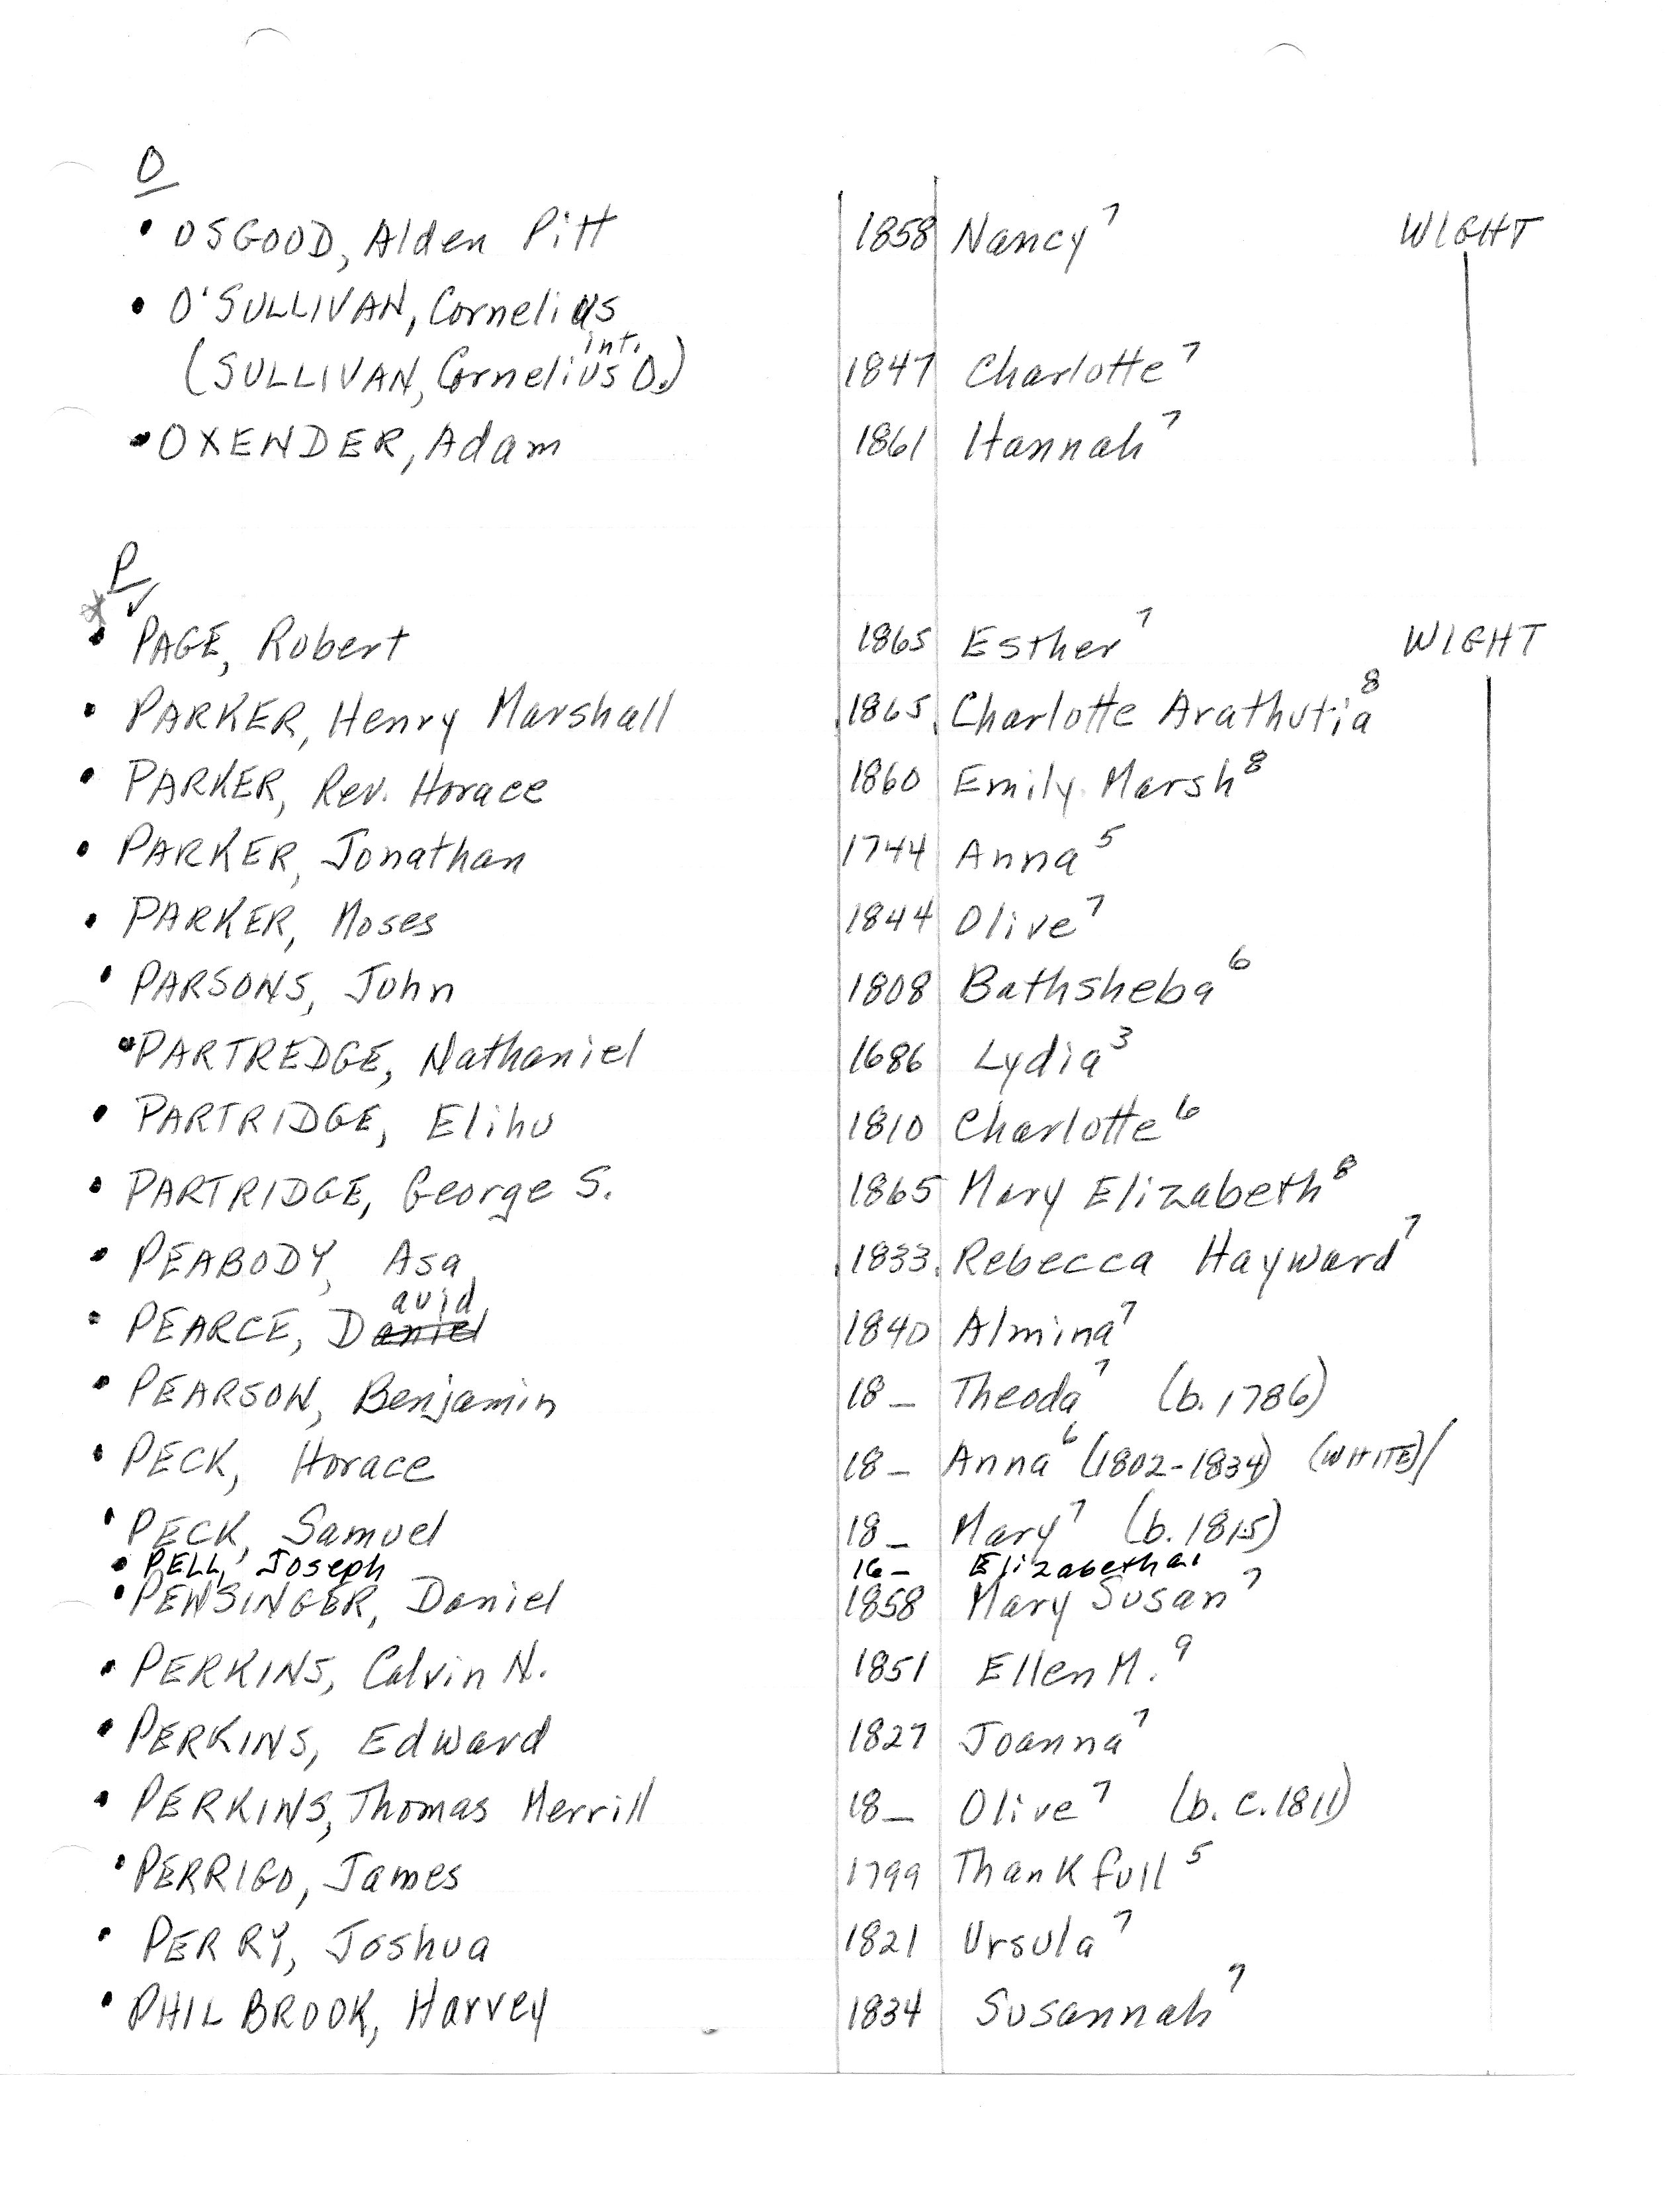 O
• OSGOOD, Alden Pitt 1858 Nancy⁷ WIGHT
• O'SULLIVAN, Cornelius
int.
(SULLIVAN, Cornelius O.) 1847 Charlotte⁷
• OXENDER, Adam 1861 Hannah⁷
P
* ✓
• PAGE, Robert 1865 Esther⁷ WIGHT
• PARKER, Henry Marshall 1865 Charlotte Arathutia⁸
• PARKER, Rev. Horace 1860 Emily Marsh⁸
• PARKER, Jonathan 1744 Anna⁵
• PARKER, Moses 1844 Olive⁷
• PARSONS, John 1808 Bathsheba⁶
• PARTREDGE, Nathaniel 1686 Lydia³
• PARTRIDGE, Elihu 1810 Charlotte⁶
• PARTRIDGE, George S. 1865 Mary Elizabeth⁸
• PEABODY, Asa 1833 Rebecca Hayward⁷
avid
• PEARCE, Daniel 1840 Almina⁷
• PEARSON, Benjamin 18_ Theoda⁷ (b. 1786)
• PECK, Horace 18_ Anna⁶ (1802-1834) (WHITE)/
• PECK, Samuel 18_ Mary⁷ (b. 1815)
• PELL, Joseph 16_ Elizabeth
• PEWSINGER, Daniel 1858 Mary Susan⁷
• PERKINS, Calvin N. 1851 Ellen M.⁹
• PERKINS, Edward 1827 Joanna⁷
• PERKINS, Thomas Merrill 18_ Olive⁷ (b. c. 1811)
• PERRIGO, James 1799 Thankfull⁵
• PERRY, Joshua 1821 Ursula⁷
• PHILBROOK, Harvey 1834 Susannah⁷